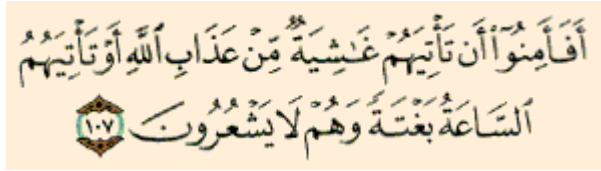 أَفَأَمِنُوٓا۟ أَن تَأْتِيَهُمْ غَـٰشِيَةٌ مِّنْ عَذَابِ ٱللَّهِ أَوْ تَأْتِيَهُمُ
ٱلسَّاعَةُ بَغْتَةً وَهُمْ لَا يَشْعُرُونَ ١٠٧